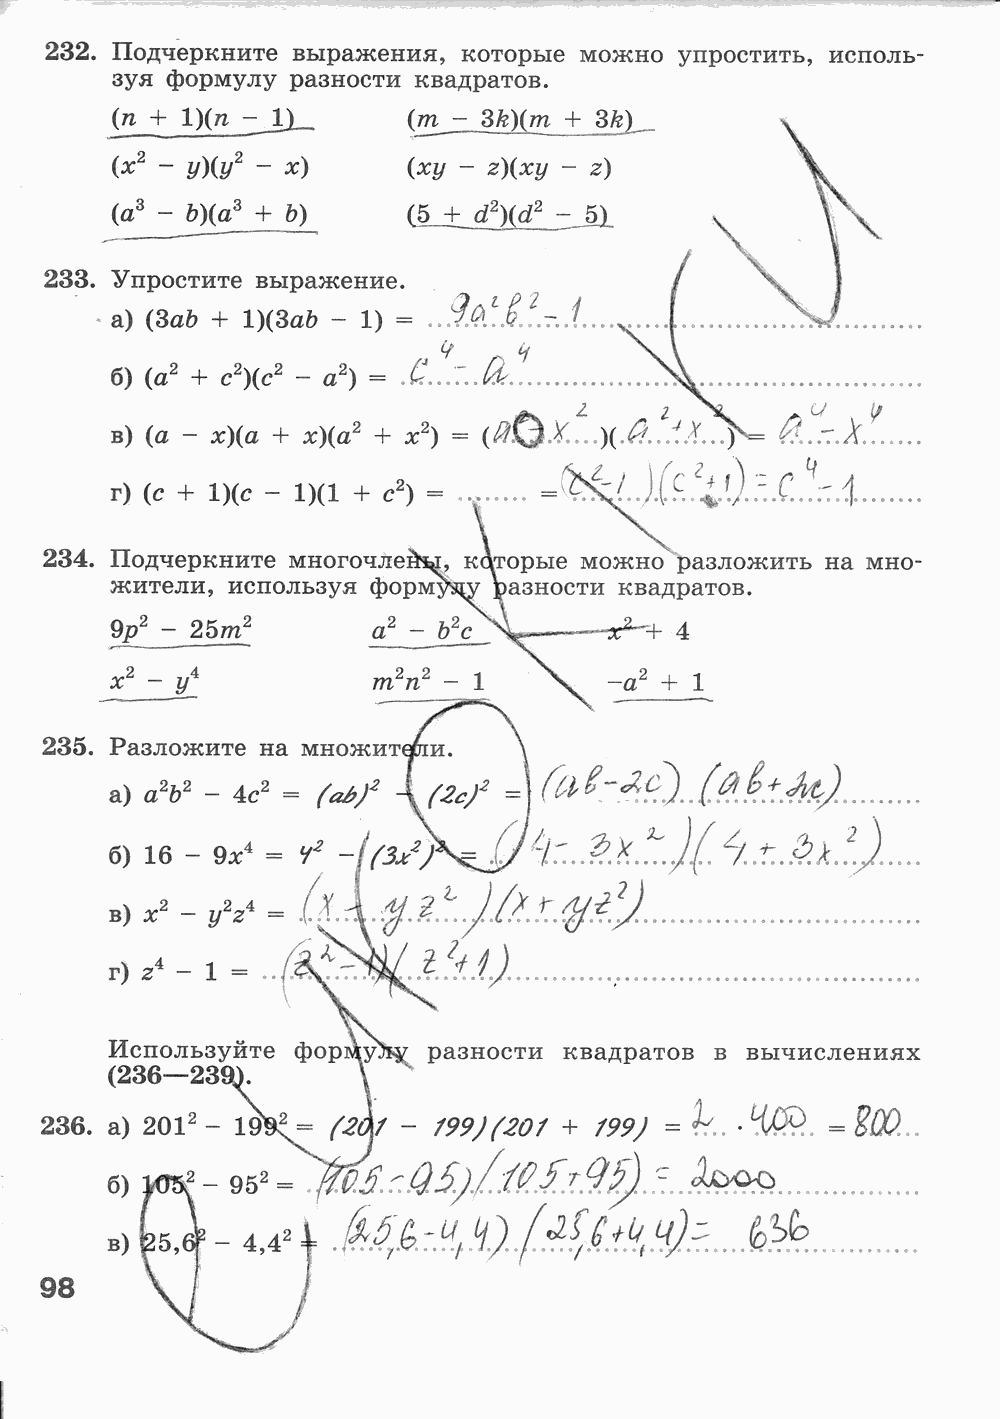 232. Подчеркните выражения, которые можно упростить, исполь-
зуя формулу разности квадратов.
(n + 1)(n − 1) (m − 3k)(m + 3k)
(x² − y)(y² − x) (xy − z)(xy − z)
(a³ − b)(a³ + b) (5 + d²)(d² − 5)
233. Упростите выражение.
а) (3ab + 1)(3ab − 1) = 9a²b² − 1
б) (a² + c²)(c² − a²) = c⁴ − a⁴
в) (a − x)(a + x)(a² + x²) = (a² − x²)(a² + x²) = a⁴ − x⁴
г) (c + 1)(c − 1)(1 + c²) = ........ = (c² − 1)(c² + 1) = c⁴ − 1
234. Подчеркните многочлены, которые можно разложить на мно-
жители, используя формулу разности квадратов.
9p² − 25m² a² − b²c x² + 4
x² − y⁴ m²n² − 1 −a² + 1
235. Разложите на множители.
а) a²b² − 4c² = (ab)² − (2c)² = (ab − 2c) (ab + 2c)
б) 16 − 9x⁴ = 4² − (3x²)² = (4 − 3x²)(4 + 3x²)
в) x² − y²z⁴ = (x − yz²)(x + yz²)
г) z⁴ − 1 = (z² − 1)(z² + 1)
Используйте формулу разности квадратов в вычислениях
(236—239).
236. а) 201² − 199² = (201 − 199)(201 + 199) = 2 · 400 = 800
б) 105² − 95² = (105 − 95)(105 + 95) = 2000
в) 25,6² − 4,4² = (25,6 − 4,4)(25,6 + 4,4) = 636
98